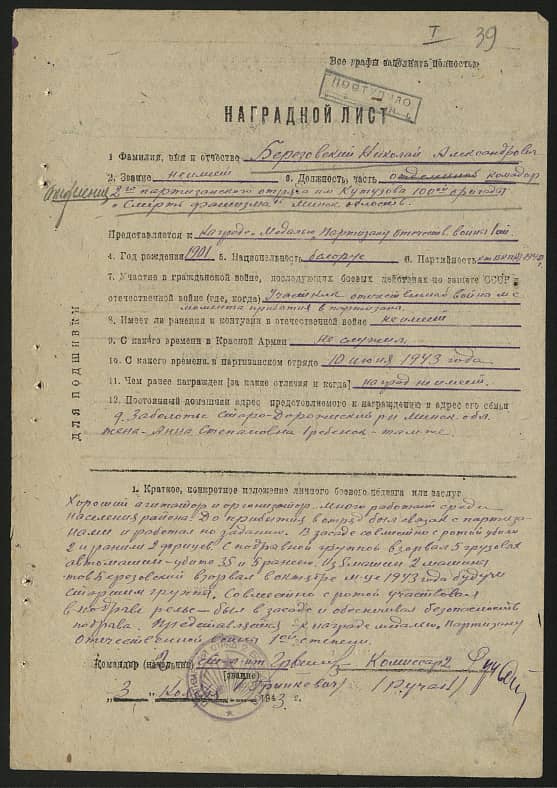 I 39
Все графы заполнять полностью
ПОСТУПИЛО
НАГРАДНОЙ ЛИСТ
1 Фамилия, имя и отчество Березовский Николай Александрович
2. Звание неимеет 3. Должность, часть отделения командир
отделения
2го партизанского отряда им Кутузова 100ой бригады
"Смерть фашизма" Минск. область.
Представляется к награде Медалью "Партизану отечеств. войны" 1ой
4. Год рождения 1901 5. Национальность белорус 6. Партийность
7. Участие в гражданской войне, последующих боевых действиях по защите СССР
отечественной войне (где, когда) Участник отечественной войны с
момента прибытия в партизаны.
8. Имеет ли ранения и контузии в отечественной войне неимеет
9. С какого времени в Красной Армии не служил.
10. С какого времени в партизанском отряде 10 июня 1943 года.
11. Чем ранее награжден [за какие отличия и когда] наград неимеет.
12. Постоянный домашний адрес представляемого к награждению и адрес его семьи
д. Заболотье Старо-Дорожский р-н Минск. обл.
жена - Анна Степановна Гребенок - там же.
ДЛЯ ПОДШИВКИ
1. Краткое, конкретное изложение личного боевого подвига или заслуг
Хороший агитатор и организатор. Много работает среди
населения района. До прибытия в отряд был связан с партиза-
нами и работал по заданию. В засаде совместно с ротой убили
2 и раним 2 фрицев. С подрывной группой взорвал 5 грузовых
автомашин - убито 35 и 5 ранен. Из 5 машин 2 машины
тов Березовский взорвал в октябре м-це 1943 года будучи
старшим группы. Совместно с ротой участвовал
в подрыве рельс - был в засаде и обеспечивал безопасность
подрыва. Представляется к награде медалью, Партизану
Отечественной войны 1ой степени.
Командир (начальник) Комиссар
(звание)
"3" 1943 г. (Гринкевич) (Лучан)